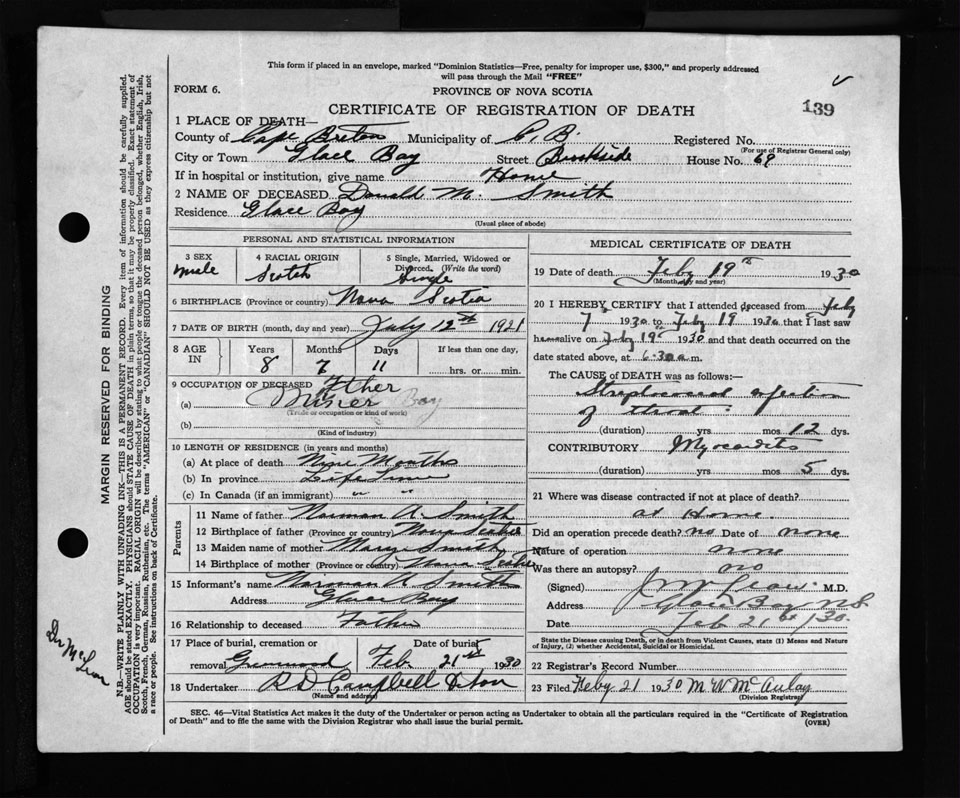 This form if placed in an envelope, marked "Dominion Statistics—Free, penalty for improper use, $300," and properly addressed
will pass through the Mail "FREE"
FORM 6. PROVINCE OF NOVA SCOTIA
CERTIFICATE OF REGISTRATION OF DEATH 139
1 PLACE OF DEATH—
County of Cape Breton Municipality of C. B. Registered No.
(For use of Registrar General only)
City or Town Glace Bay Street Brookside House No. 69
If in hospital or institution, give name Home
2 NAME OF DECEASED Donald M. Smith
Residence Glace Bay
(Usual place of abode)
PERSONAL AND STATISTICAL INFORMATION
3 SEX 4 RACIAL ORIGIN 5 Single, Married, Widowed or
Divorced. (Write the word)
male Scotch Single
6 BIRTHPLACE (Province or country) Nova Scotia
7 DATE OF BIRTH (month, day and year) July 12th 1921
8 AGE IN Years Months Days If less than one day,
8 7 11 hrs. or min.
9 OCCUPATION OF DECEASED
(a) Miner
(Trade or occupation or kind of work)
(b)
(Kind of industry)
10 LENGTH OF RESIDENCE (in years and months)
(a) At place of death Nine Months
(b) In province Life Time
(c) In Canada (if an immigrant) " "
Parents
11 Name of father Norman A. Smith
12 Birthplace of father (Province or country) Nova Scotia
13 Maiden name of mother Mary Smith
14 Birthplace of mother (Province or country) Nova Scotia
15 Informant's name Norman A Smith
Address Glace Bay
16 Relationship to deceased Father
17 Place of burial, cremation or Date of burial
removal Greenwood Feb. 21st 1930
18 Undertaker R D Campbell & Son
(Name and address)
MEDICAL CERTIFICATE OF DEATH
19 Date of death Feby 19th 1930
(Month, day and year)
20 I HEREBY CERTIFY that I attended deceased from Feby
7th 1930 to Feby 19 1930 that I last saw
h alive on Feby 19th 1930 and that death occurred on the
date stated above, at 6.30 a.m.
The CAUSE OF DEATH was as follows:—
Streptococcal infection
of throat
(duration) yrs mos 12 dys.
CONTRIBUTORY Myocarditis
(duration) yrs mos 5 dys.
21 Where was disease contracted if not at place of death?
at Home.
Did an operation precede death? no Date of none
Nature of operation none
Was there an autopsy? no
(Signed) M.D.
Address Glace Bay NS
Date Feb 21st /30.
State the Disease causing Death, or in death from Violent Causes, state (1) Means and Nature
of Injury, (2) whether Accidental, Suicidal or Homicidal.
22 Registrar's Record Number
23 Filed Feby 21 1930 M W McAulay
(Division Registrar)
SEC. 46—Vital Statistics Act makes it the duty of the Undertaker or person acting as Undertaker to obtain all the particulars required in the "Certificate of Registration
of Death" and to file the same with the Division Registrar who shall issue the burial permit. (OVER)
MARGIN RESERVED FOR BINDING
N.B.—WRITE PLAINLY WITH UNFADING INK—THIS IS A PERMANENT RECORD. Every item of information should be carefully supplied.
AGE should be stated EXACTLY. PHYSICIANS should STATE CAUSE OF DEATH in plain terms, so that it may be properly classified. Exact statement of
OCCUPATION is very important. RACIAL ORIGIN will be described by stating to what people or tongue the deceased person belonged, whether English, Irish,
Scotch, French, German, Russian, Ruthenian, etc. The terms "AMERICAN" or "CANADIAN" SHOULD NOT BE USED as they express citizenship but not
a race or people. See instructions on back of Certificate.
Dr McLean